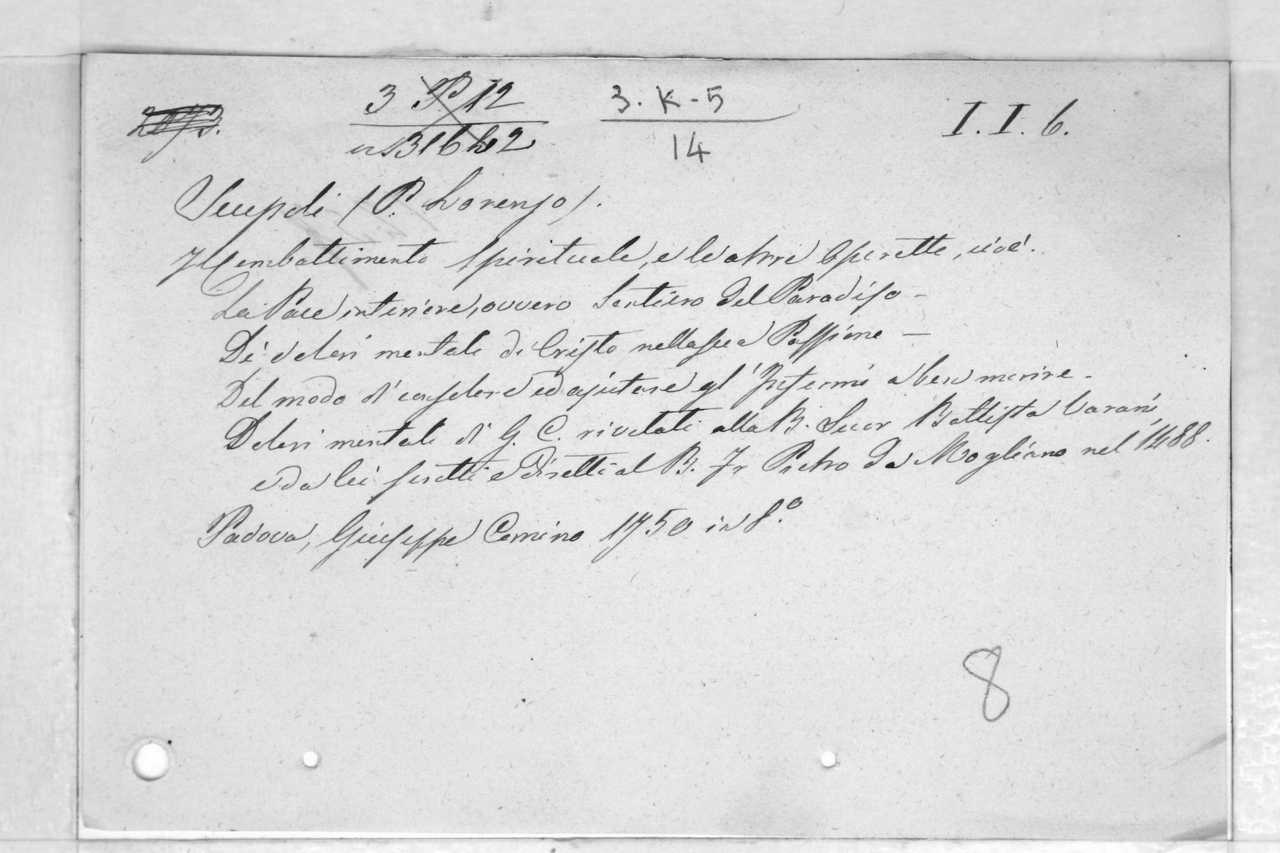 3 P 12 3. K - 5 I. I. 6.
14
Scupoli (P. Lorenzo).
Il Combattimento Spirituale, e le altre Operette, cioè.
La Pace interiore, ovvero Sentiero del Paradiso -
Dei dolori mentali di Cristo nella sua Passione -
Del modo di consolare ed ajutare gl'Infermi a ben morire.
Dolori mentali di G. C. rivelati alla B. Suor Battista Varani,
e da lei scritti e diretti al B. Fr Pietro da Mogliano nel 1488.
Padova, Giuseppe Comino 1750 in 8.º
8